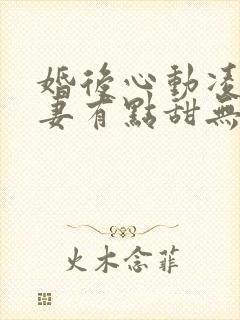 婚後心動凌
妻有點甜無
火木念菲